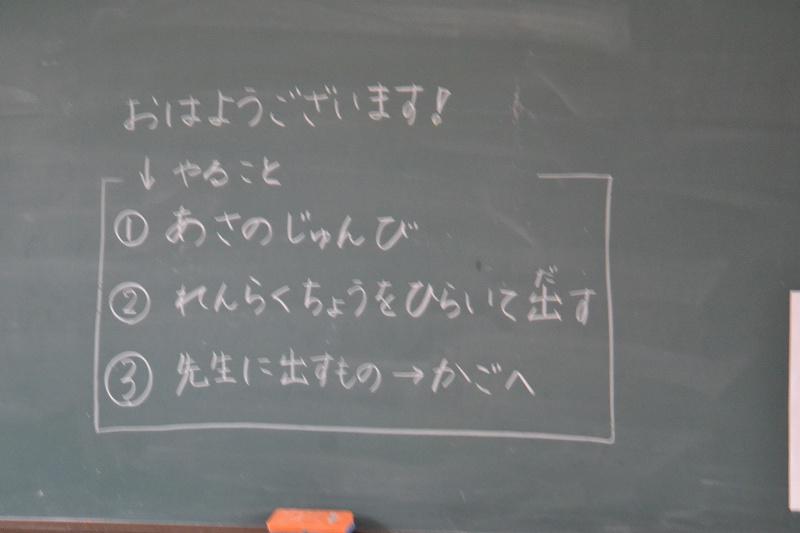 おはようございます!
↓やること
① あさのじゅんび
② れんらくちょうをひらいて出す
だ
③ 先生に出すもの→かごへ